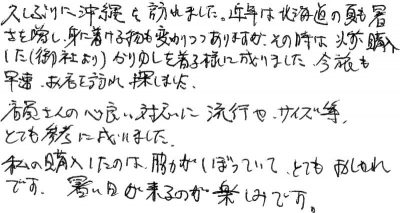 久しぶりに沖縄を訪れました。近年は北海道の夏も暑
さを増し、身に着ける物も変わりつつありますが、その時は、以前購入
した(御社より)かりゆしを着る様に成りました。今旅も
早速、お店を訪れ探しました。
店員さんの心良い対応に流行や、サイズ等、
とても参考に成りました。
私の購入したのは、脇がしぼっていて、とてもおしゃれ
です。暑い日が来るのが楽しみです。